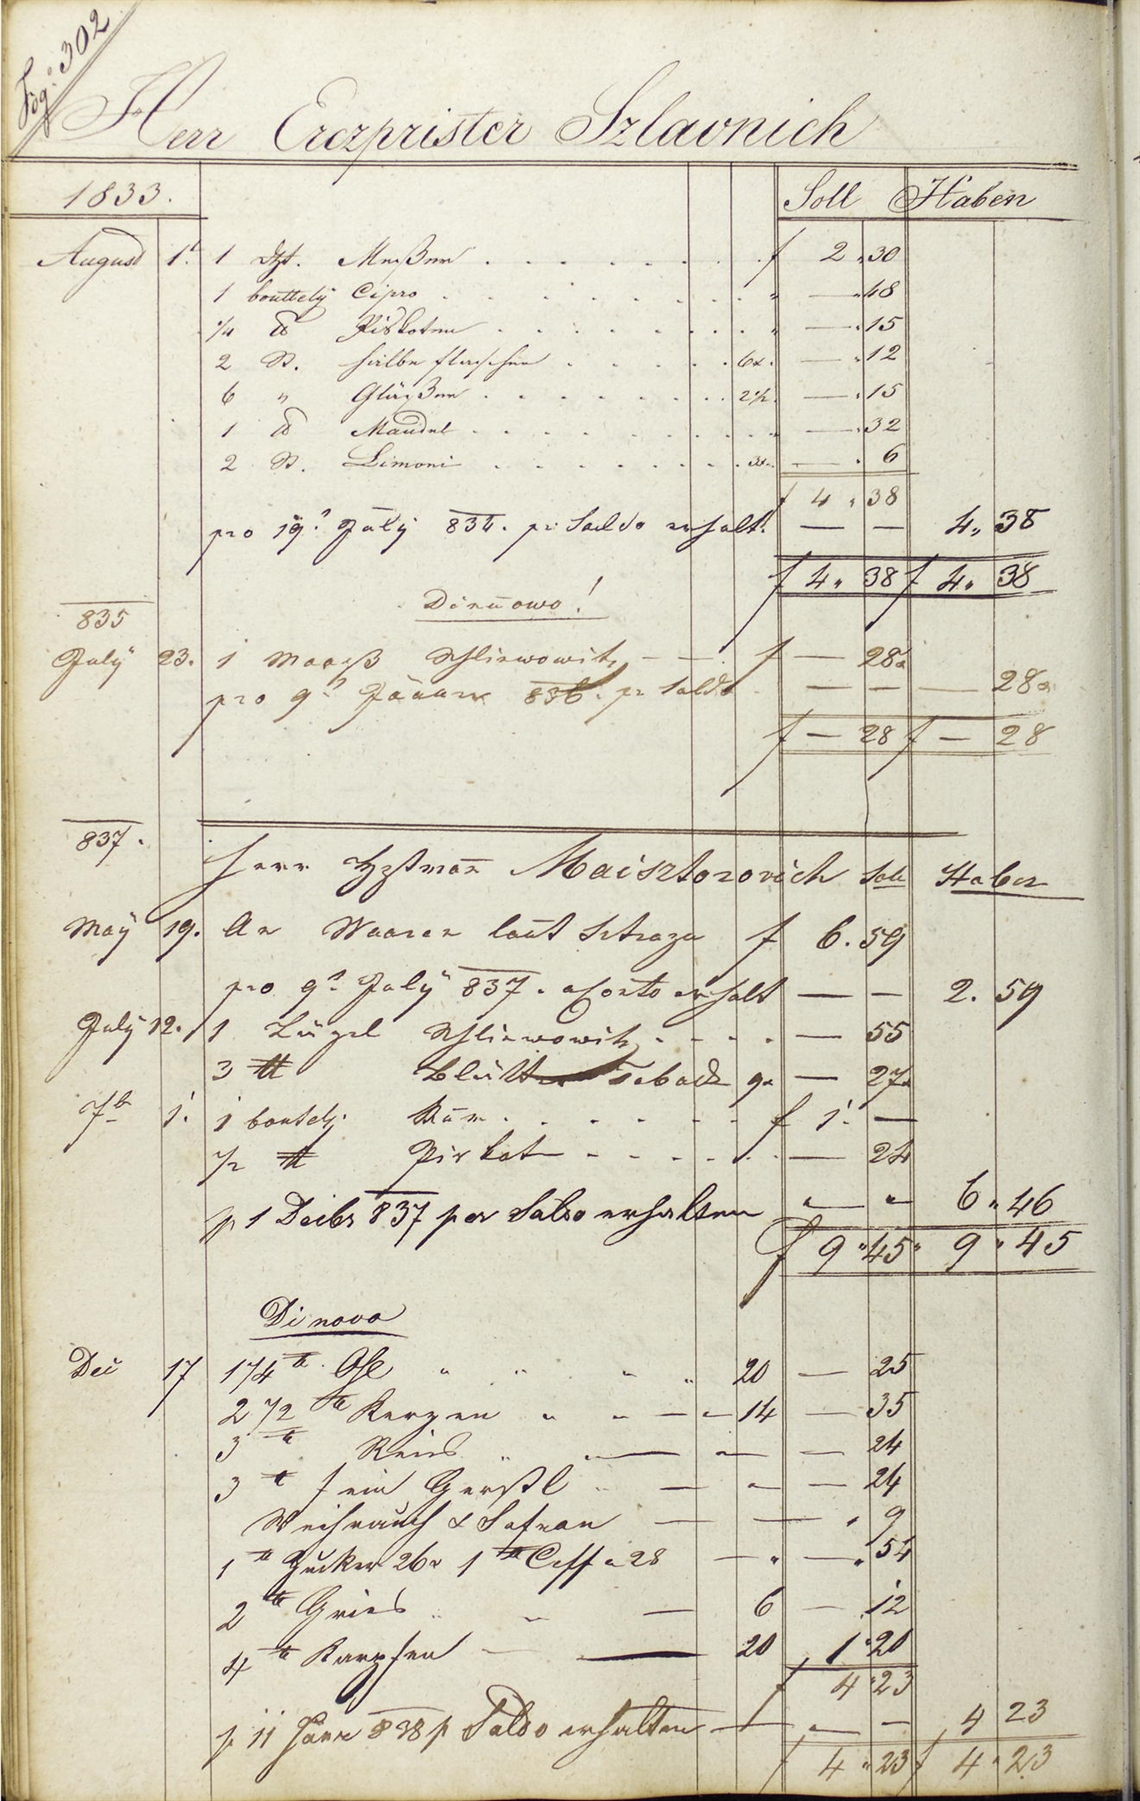 Fog: 302
Herr Erczprister Szlavnich
1833. Soll Haben
August 1t. 1 Dzt. Meßer . . . . . . f 2 " 30
1 bouttely Cipro . . . . . . " — " 48
1/4 ℔ Piskoten . . . . . . " — " 15
2 St. halbe flaschen . . . . . 6x. — " 12
6 " Gläßer . . . . . . 2½ — " 15
1 ℔ Mandel . . . . . . " — " 32
2 St. Limoni . . . . . . 3x. — " 6
f 4 " 38
pro 19t July 834. pr Saldo erhalt. — — 4 " 38
f 4 " 38 f 4 " 38
Dinuowo!
835
July 23. 1 Maaß Schliwowitz — — f — 28x
pro 9t Jäner 836. pr Saldo — — — 28x
f — 28 f — 28
837.
Herr Maisztorovich Soll Haben
May 19. An Waaren laut Strazza f 6. 59
pro 9t July 837. aConto erhalt — — 2. 59
July 12. 1 Schliwowitz . . . . — 55
3 ℔ Blätter Taback 9x — 27x
7b 1. 1 boutely Rum . . . . . . f 1. —
1/2 ℔ Piskot — . . . . . — 24
p 1 Decbr 837 per Saldo erhalten " " 6 " 46
f 9 " 45 " 9 " 45
Di novo
Dec 17 1 1/4 ℔ Öhl " " " " 20 — 25
2 1/2 ℔ Kerzen " " — " 14 — 35
3 ℔ Reis " " — " — 24
3 ℔ fein Gerstl " — " — 24
Weihrauch & Safran — — " 9
1 ℔ Zucker 26x 1 ℔ Caffe 28 — " — " 54
2 ℔ Gries " " — 6 — 12
4 ℔ Karpfen — — 20 1 " 20
f 4 " 23
p 11 Jäner 838 p Saldo erhalten — — — 4 23
f 4 " 23 f 4 " 23